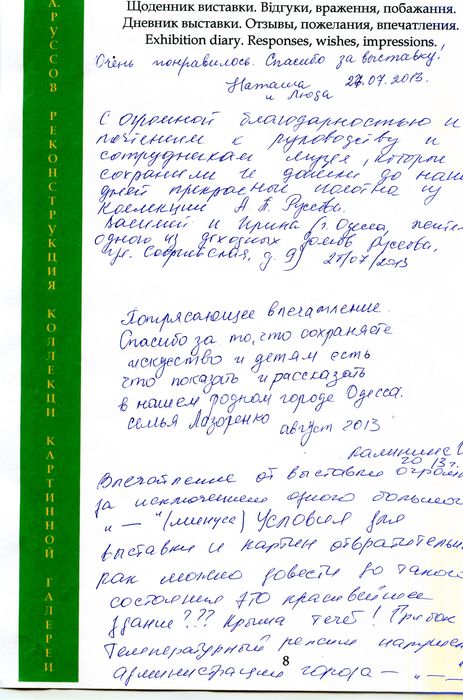 Щоденник виставки. Відгуки, враження, побажання.
Дневник выставки. Отзывы, пожелания, впечатления.
Exhibition diary. Responses, wishes, impressions.
А.РУССОВ РЕКОНСТРУКЦИЯ КОЛЛЕКЦИ КАРТИННОЙ ГАЛЕРЕИ
Очень понравилось. Спасибо за выставку!
Наташа 27.07.2013.
и Люда
С огромной благодарностью и
почтением к руководству и
сотрудникам музея, которые
сохранили и донесли до наших
дней прекрасные полотна из
коллекции А. П. Руссова.
Василий и Ирина (г. Одесса, жители
одного из доходных домов Руссова,
ул. Софиевская, д. 9) 27/07/2013
Потрясающее впечатление.
Спасибо за то, что сохраняете
искусство и детям есть
что показать и рассказать
в нашем родном городе Одесса.
семья Лазоренко август 2013
2013г.
Впечатление от выставки огромн
за исключением одного большог
"—" (минуса) Условия для
выставки и картин отвратительн
Как можно довести до такого
состояния это красивейшее
здание??? Крыша течет! Грибок
Температурный режим наруше
администрации города — "—"
8